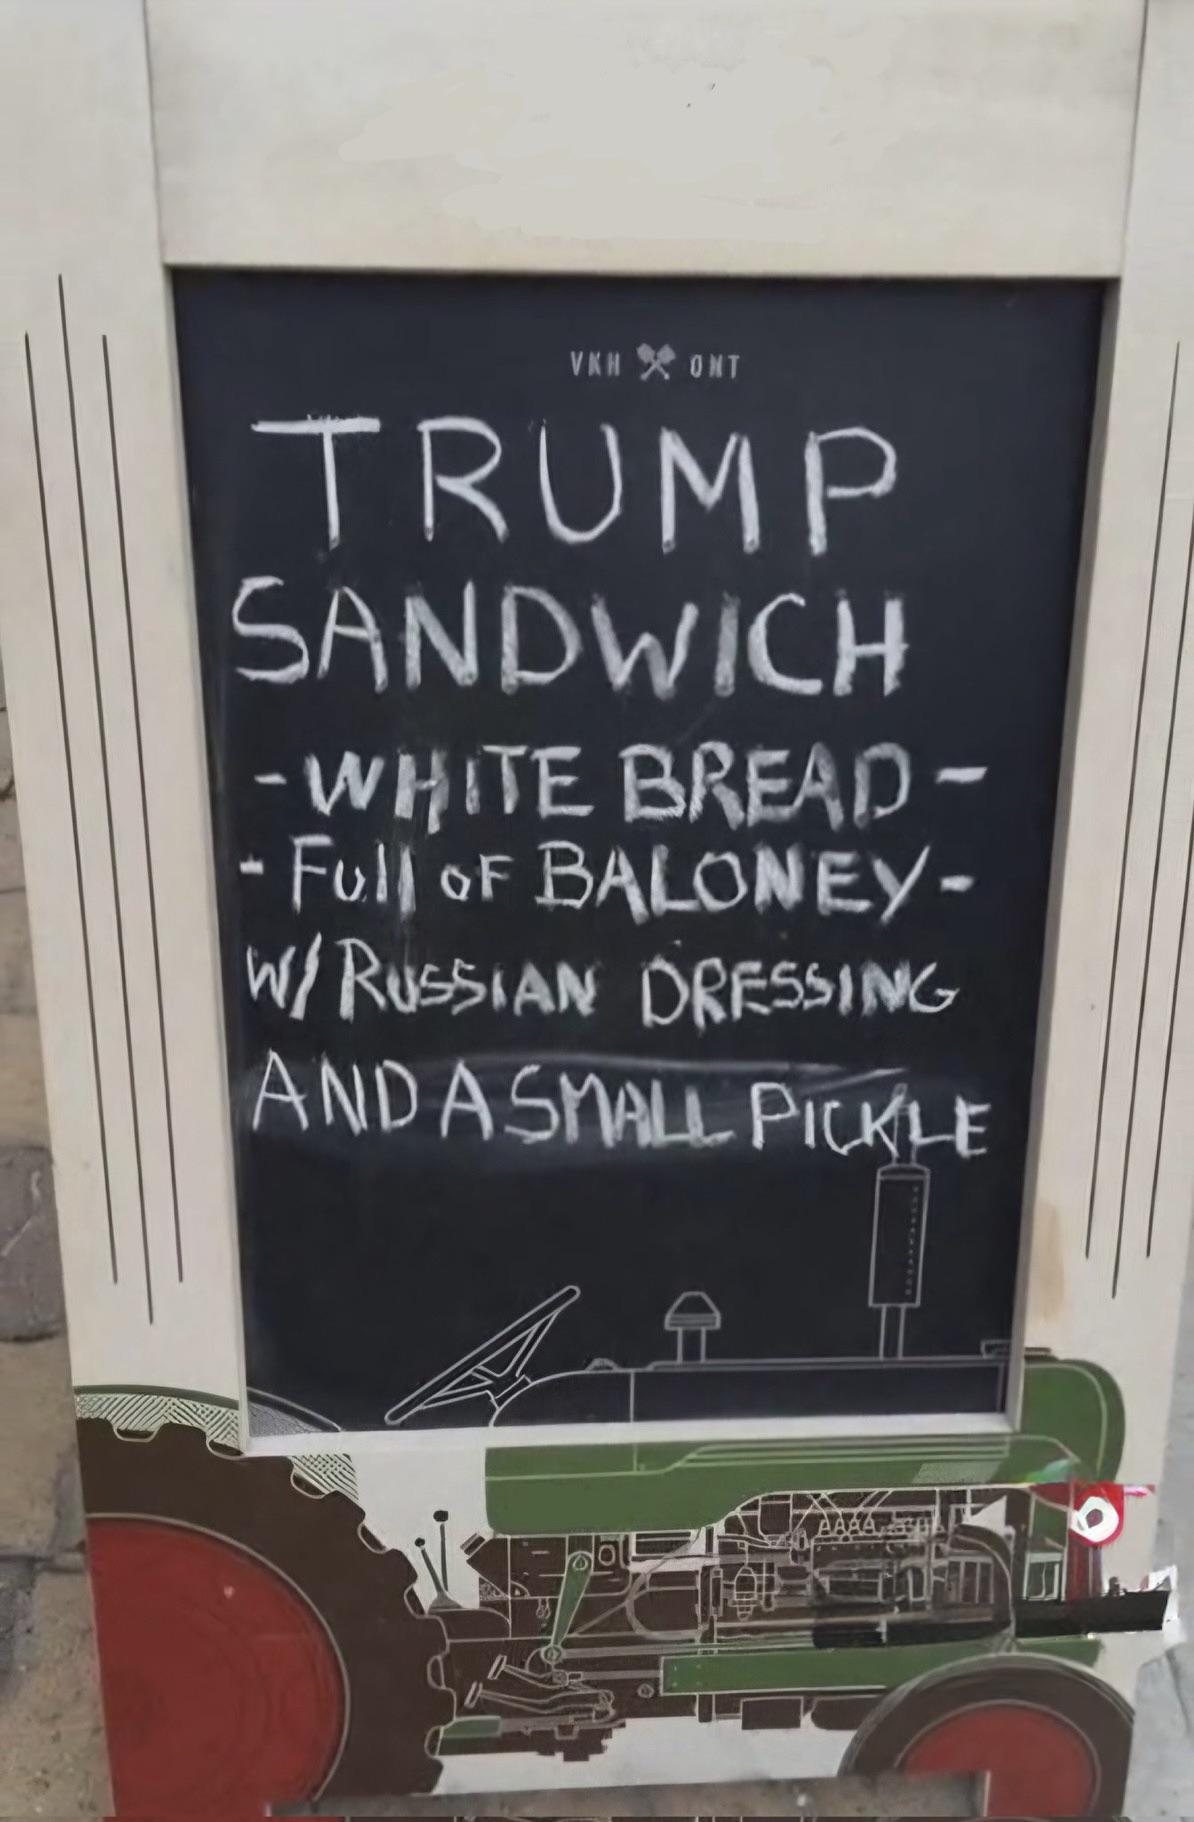 VKH ONT
TRUMP
SANDWICH
-WHITE BREAD-
-Full of BALONEY-
W/ RUSSIAN DRESSING
AND A SMALL PICKLE